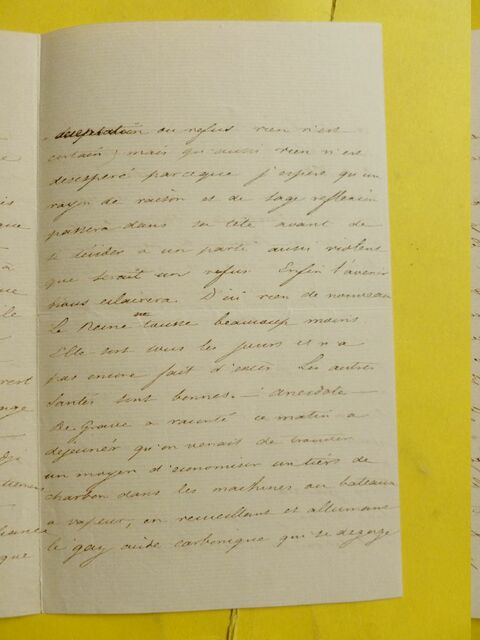 acceptation ou refus rien n'est
certain; mais qu'aussi rien n'est
desesperé parceque j'espère qu'un
rayon de raison et de sage reflexion
passera dans sa tête avant de
se décider à un parti aussi violent
que serait un refus. Enfin l'avenir
nous eclairera. D'ici rien de nouveau
La Reine tousse beaucoup moins.
Elle sort tous les jours et n'a
pas encore fait d'excès. Les autres
santés sont bonnes. — anecdote —
De Grave a raconté ce matin a
dejeuner qu'on venait de trouver
un moyen d'economiser un tiers de
charbon dans les machines au bateaux
a vapeur, en recueillant et allumant
le gaz acide carbonique qui se degage